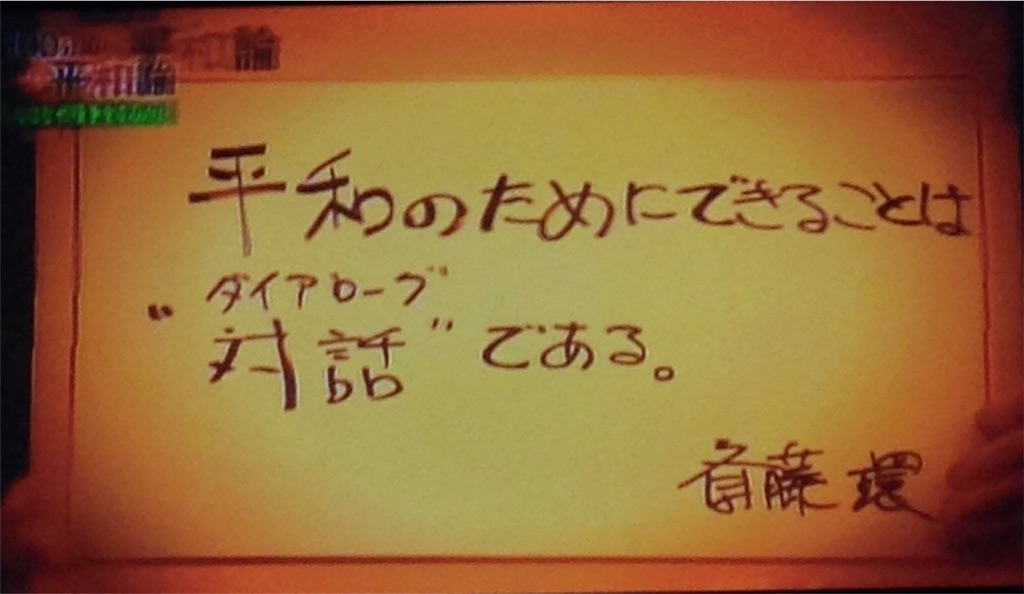 平和論
平和のためにできることは
ダイアローグ
“対話”である。
斎藤環